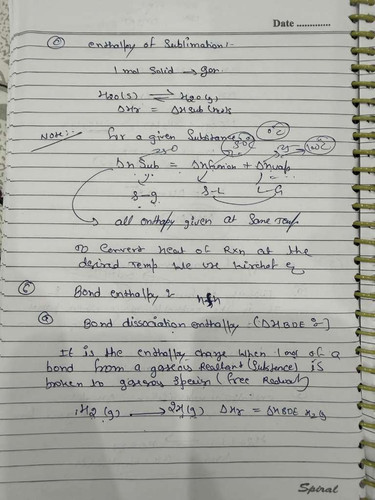 Date .............
② enthalpy of Sublimation:-
1 mol Solid → gas.
H2O(s) ⇌ H2O(g)
ΔHr = ΔHsub H2O(s)
NOTE:- for a given Substance 0°C
100°C
ΔHSub = ΔHfusion + ΔHvap
S-g S-L L-G
all enthalpy given at Same temp
or Convert heat of Rxn at the
desired Temp we use kirchof Eq
C Bond enthalpy :-
ⓐ Bond dissociation enthalpy (ΔH BDE :-]
It is the enthalpy change when 1 mol of a
bond from a gaseous Reactant (Substance) is
broken to gaseous Species (free Radical)
H2 (g) → 2H(g) ΔHr = ΔHBDE H2g
Spiral